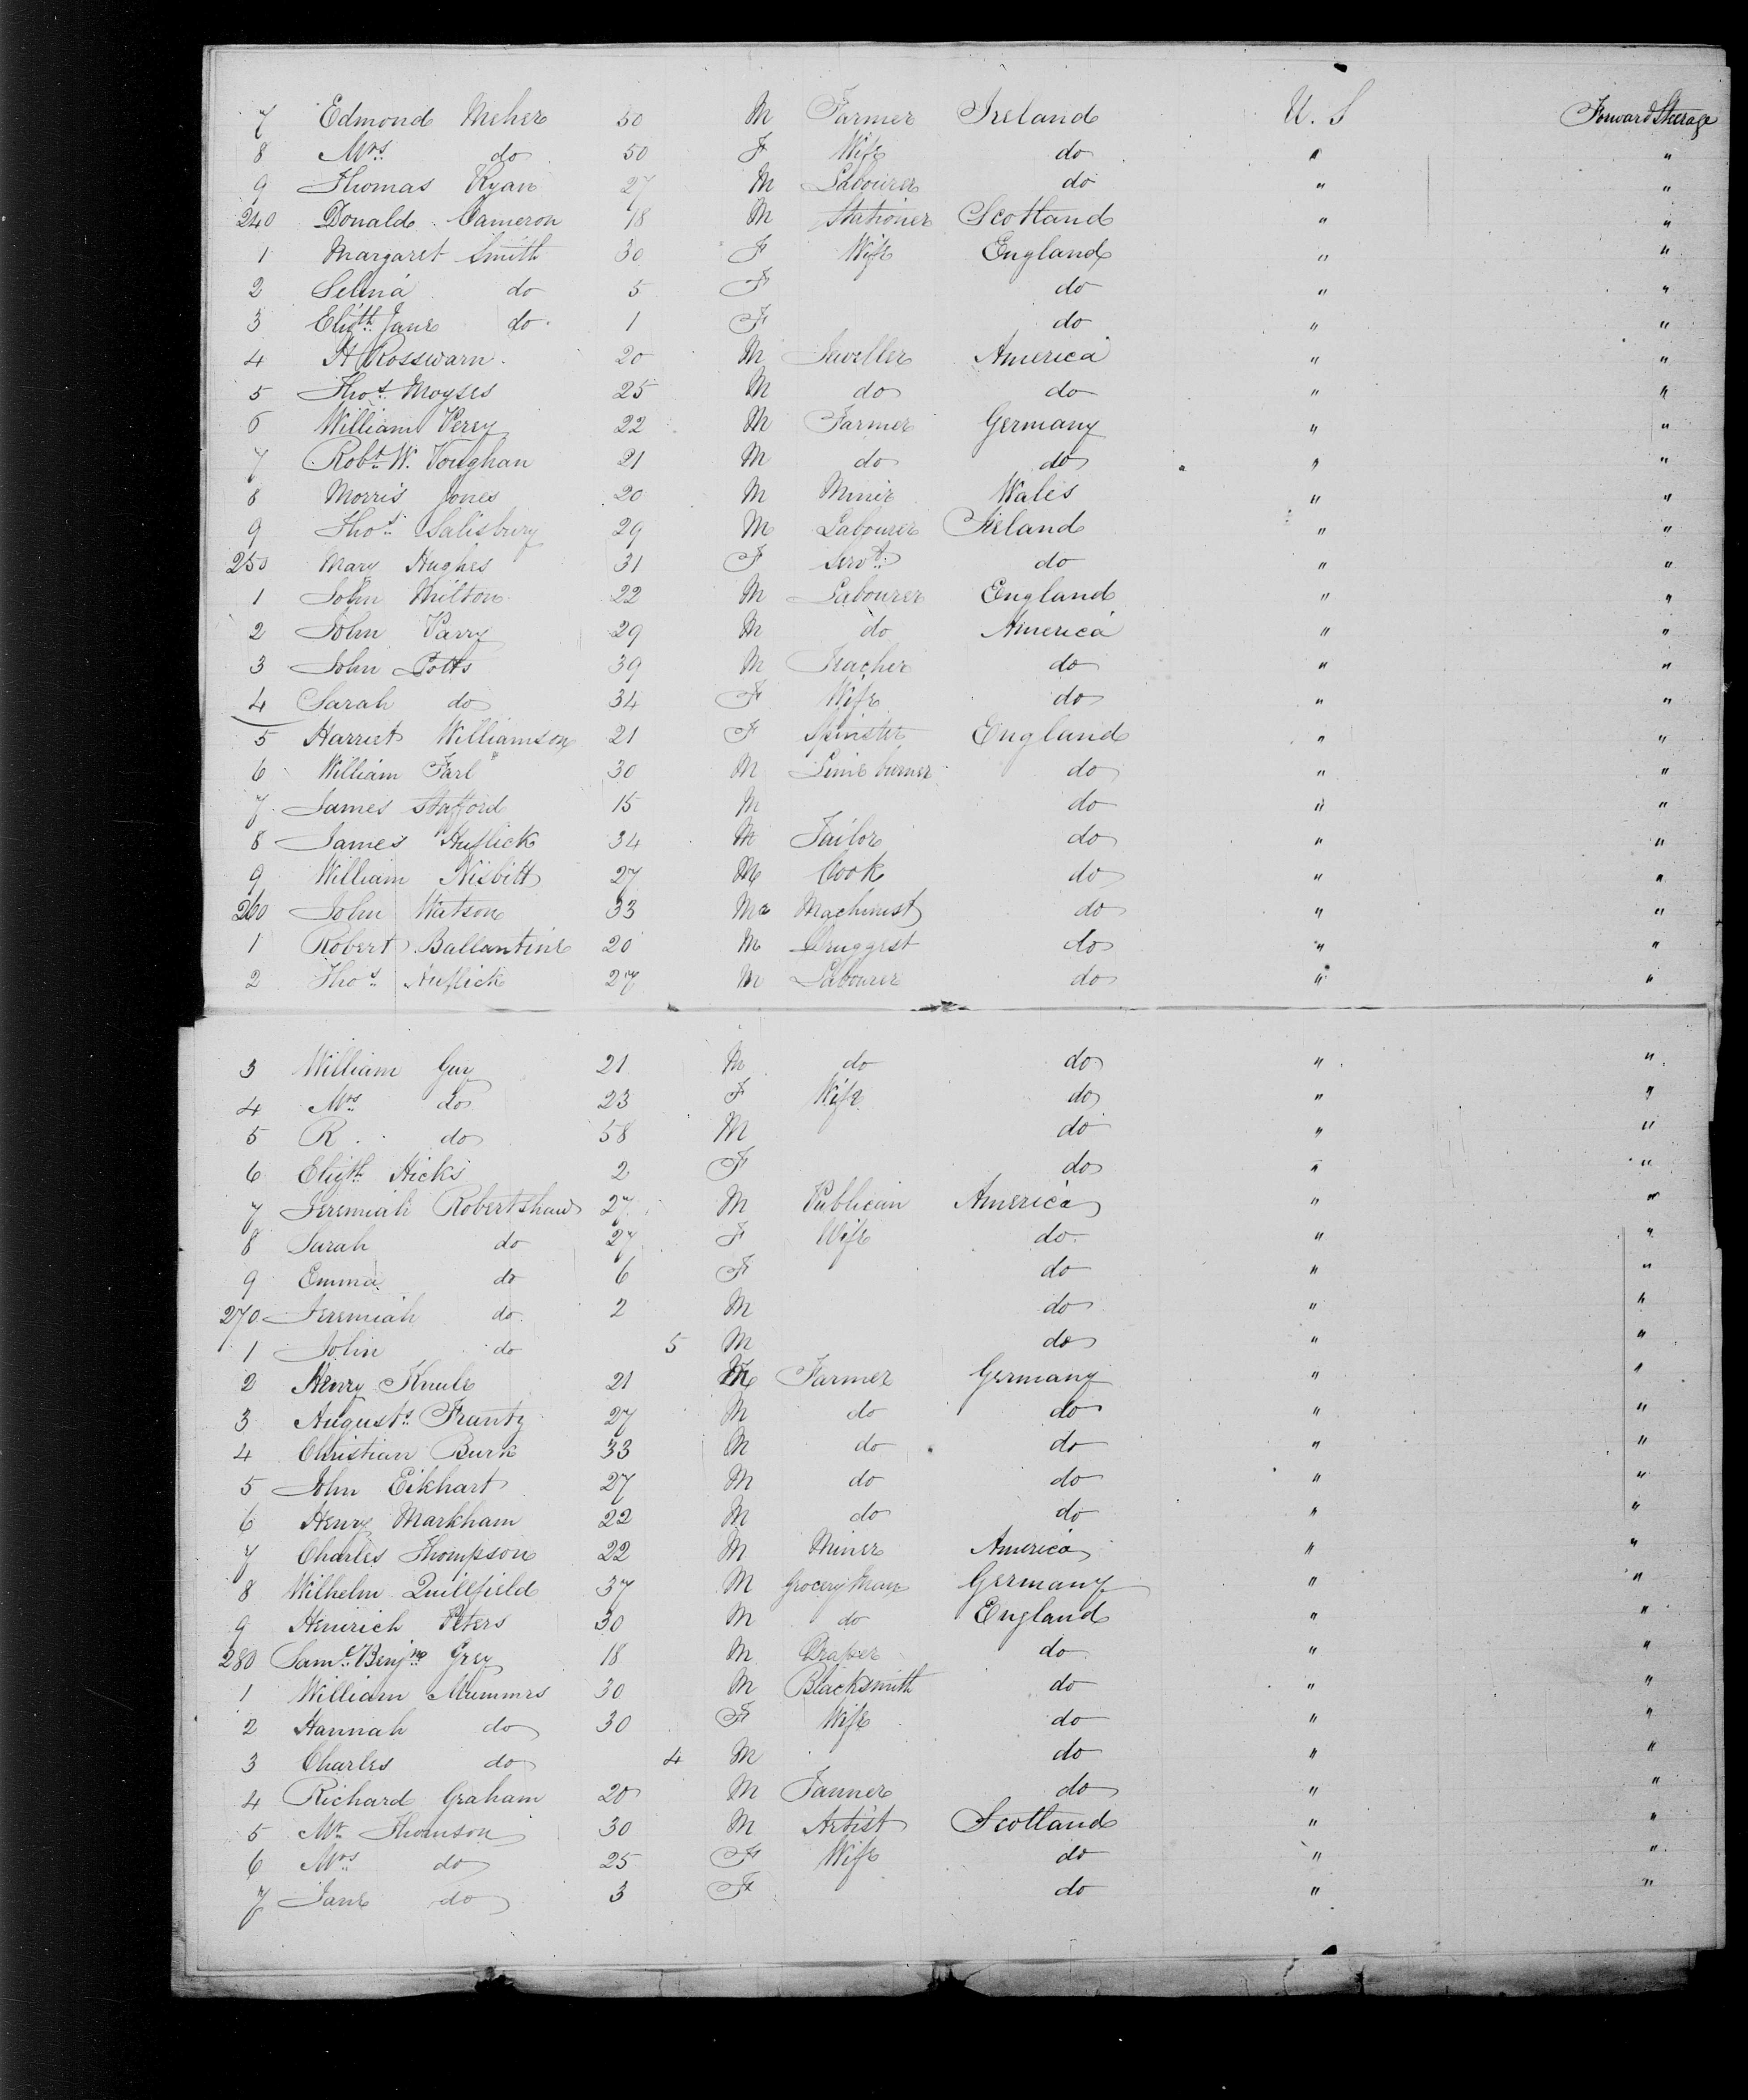 7 Edmond Meher 50 M Farmer Ireland U.S Forward Steerage
8 Mrs do 50 F Wife do " "
9 Thomas Ryan 27 M Labourer do " "
240 Donald Cameron 18 M Stationer Scotland " "
1 Margaret Smith 30 F Wife England " "
2 Selina do 5 F do " "
3 Elizth Jane do 1 F do " "
4 H Rosswarn 20 M Jweller America " "
5 Thos Moyses 25 M do do " "
6 William Perey 22 M Farmer Germany " "
7 Robt W. Voughan 21 M do do " "
8 Morris Jones 20 M Miner Wales " "
9 Thos Salisbury 29 M Labourer Ireland " "
250 Mary Hughes 31 F Servt do " "
1 John Milton 22 M Labourer England " "
2 John Parry 29 M do America " "
3 John Potts 39 M Teacher do " "
4 Sarah do 34 F Wife do " "
5 Harriet Williamson 21 F Spinster England " "
6 William Farl 30 M Lime burner do " "
7 James Stafford 15 M do " "
8 James 34 M Tailor do " "
9 William Nisbitt 27 M Cook do " "
260 John Watson 33 M Machinist do " "
1 Robert Ballantine 20 M Druggest do " "
2 Thos 27 M Labourer do " "
3 William Guy 21 M do do " "
4 Mrs do 23 F Wife do " "
5 R. do 58 M do " "
6 Elizth Hicks 2 F do " "
7 Jeremiah Robertshaw 27 M Publican America " "
8 Sarah do 27 F Wife do " "
9 Emma do 6 F do " "
270 Jeremiah do 2 M do " "
1 John do 5 M do " "
2 Henry 21 M Farmer Germany " "
3 Augusts Frantz 27 M do do " "
4 Christian Burk 33 M do do " "
5 John Eikhart 27 M do do " "
6 Henry Markham 22 M do do " "
7 Charles Thompson 22 M Miner America " "
8 Wilhelm Quillfield 37 M Grocery Man Germany " "
9 Heinrich Peters 30 M do England " "
280 Saml Benjn Grey 18 M Draper do " "
1 William Mummrs 30 M Blacksmith do " "
2 Hannah do 30 F Wife do " "
3 Charles do 4 M do " "
4 Richard Graham 20 M Tanner do " "
5 Mr Thomson 30 M Artist Scotland " "
6 Mrs do 25 F Wife do " "
7 Jane do 3 F do " "